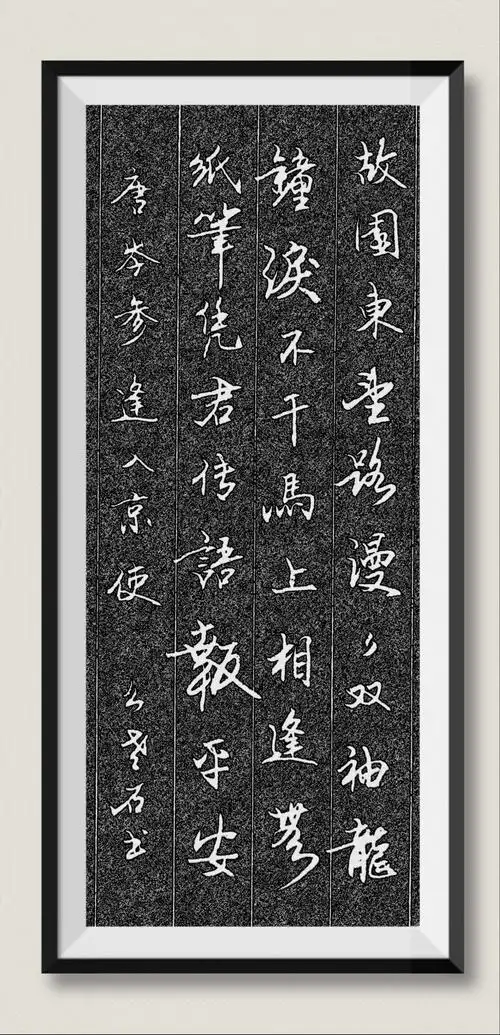 故園東望路漫々双袖龍
鐘淚不干馬上相逢無
紙筆凭君传語報平安
唐岑参逢入京使
石书